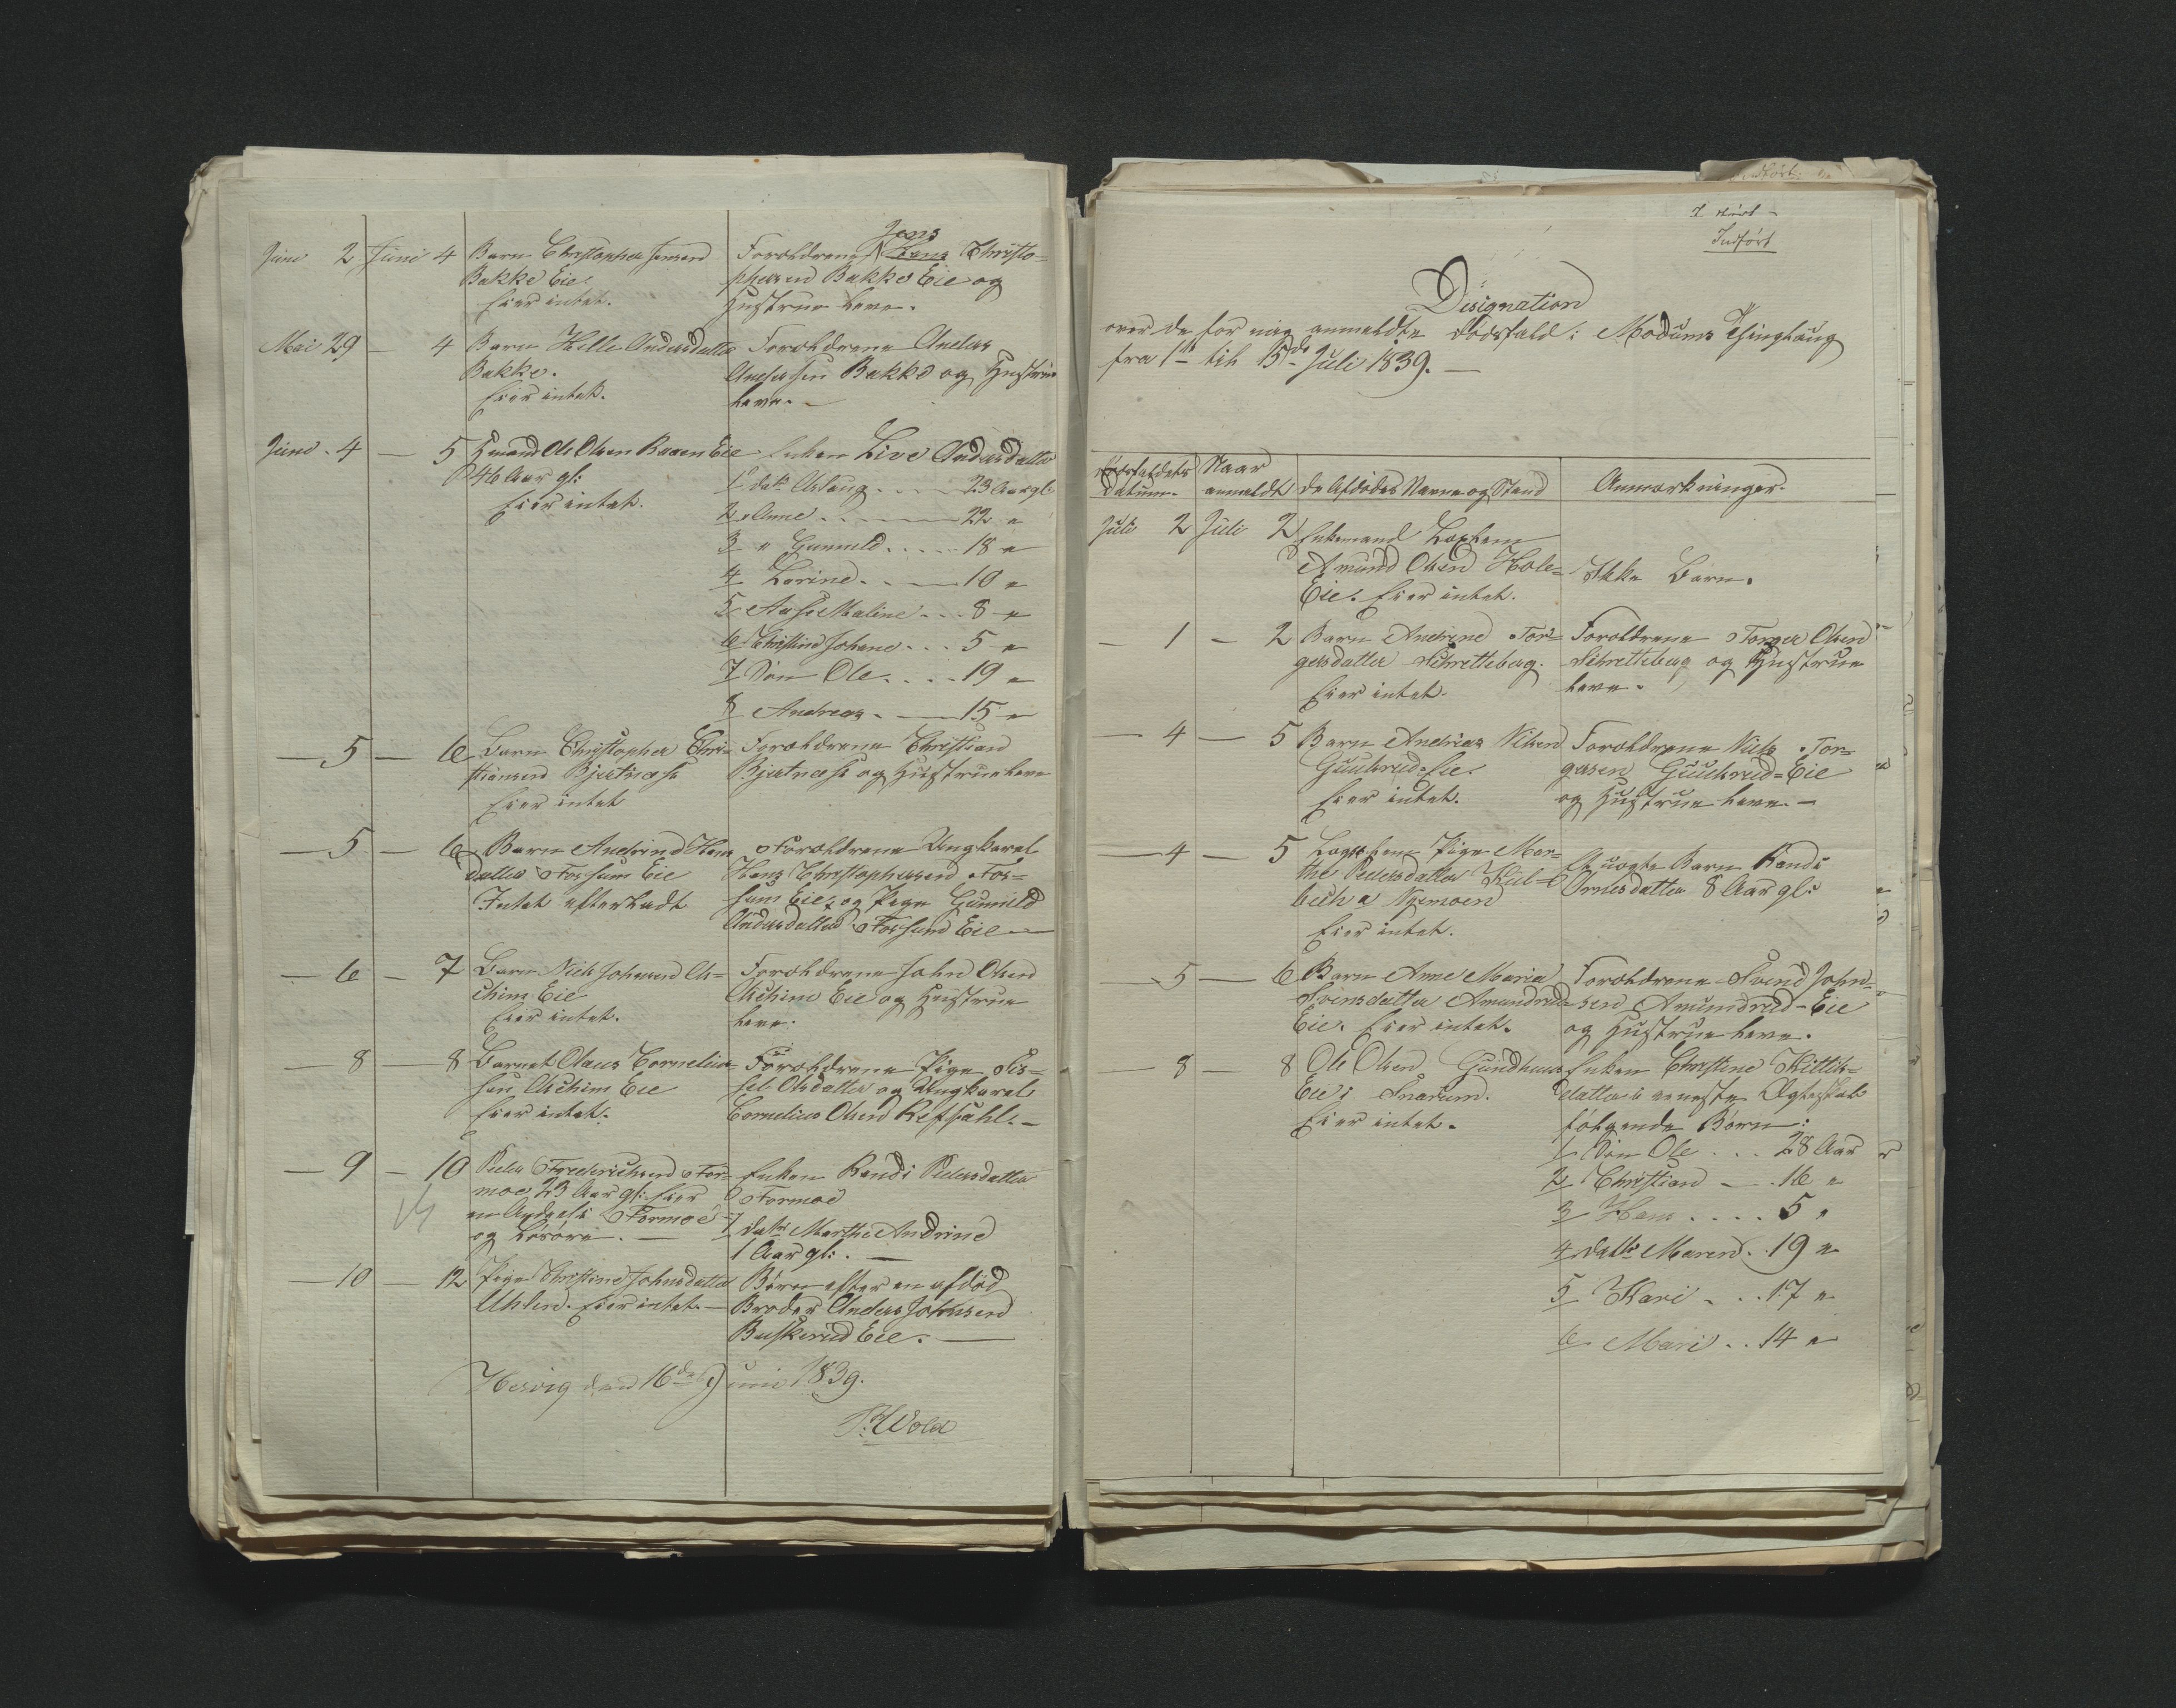 Juni 2 Juni 4 Barn Christopher Jensen
Bakke Eie.
Eier intet.
Jens
Forældrene Christo-
phersen Bakke Eie og
Hustrue leve.
Mai 29 — 4 Barn Helle Andersdatter
Bakke.
Eier intet.
Forældrene Anders
Andersen Bakke og Hustrue
leve. —
Juni 4 — 5 Hmand Ole Olsen Braaen Eie
46 Aar gl:
Eier intet.
Enken Live Andersdatter
1 datr Aslaug . . . . 23 Aar gl:
2 Anne . . . . 22 "
3 " Gunnild . . . . 18 "
4 Lorine . . . 10 "
5 Aase Maline . . . 8 "
6 Christine Johane . . . 5 "
7 Søn Ole . . . . 19 "
8 Andreas . — 15 "
— 5 — 6 Barn Christopher Chri-
stiansen Bjertnæss
Eier intet
Forældrene Christian
Bjertnæss og Hustrue leve
— 5 — 6 Barn Andrine Hans
datter Fossum Eie
Intet efterladt
Forældrene Ungkarl
Hans Christophersen Fos-
sum Eie, og Pige Gunnild
Andersdatter Fossum Eie —
— 6 — 7 Barn Niels Johnsen As-
chim Eie
Eier intet.
Forældrene John Olsen
Aschim Eie og Hustrue
leve.
— 8 — 8 Barnet Olaus Cornelius-
sen Aschim Eie
Eier intet.
Forældrene Pige Sis-
sel Olsdatter og Ungkarl
Cornelius Olsen Refsahl. —
— 9 — 10 Peder Frederichsen For-
moe 23 Aar gl: Eier
en Andeel i Formoe
og Løsøre. —
Enken Randi Pedersdatter
Formoe
1 datr Marthe Andrine
1 Aar gl: . —
— 10 — 12 Pige Christine Johnsdatter
Uhlen. Eier intet. —
Børn efter en afdød
Broder Anders Johnsen
Buskerud Eie. —
Hervig den 16de Juni 1839.
Wold
Indført
Designation
over de for mig anmeldte dødsfald i Modums Thinglaug
fra 1ste til 15de Juli 1839. —
Dødsfaldets Datum. Naar anmeldt De Afdødes Navne og Stand Anmærkninger.
Juli 2 Juli 2 Enkemand
Amund Olsen Hole-
Eie. Eier intet.
Ikke Børn.
— 1 — 2 Barn Andrine Tor-
gersdatter Skretteberg.
Eier intet.
Forældrene Torger Olsen
Skretteberg og Hustrue
leve.
— 4 — 5 Barn Andreas Nilsen
Gulsrud-Eie.
Eier intet.
Forældrene Niels Tor-
gersen Gulsrud-Eie
og Hustrue leve. —
— 4 — 5 Pige Mar-
the Pedersdatter
Nyemoen
Eier intet.
Uægte Barn Randi
Arnesdatter 8 Aar gl:
— 5 — 6 Barn Anne Maria
Svensdatter Amundrud
Eie. Eier intet.
Forældrene Svend John-
sen Amundrud-Eie
og Hustrue leve.
— 8 8 Ole Olsen Gundhuus
Eie i Snarum.
Eier intet.
Enken Christine Kittils-
datter i eeneste Ægteskab
følgende Børn:
1 Søn Ole . . . 28 Aar
2 Christian — . 16 "
3 Hans . . . . 5 "
4 datr Maren . . 19 "
5 Kari . . . 17 "
6 Mari . . 14 "